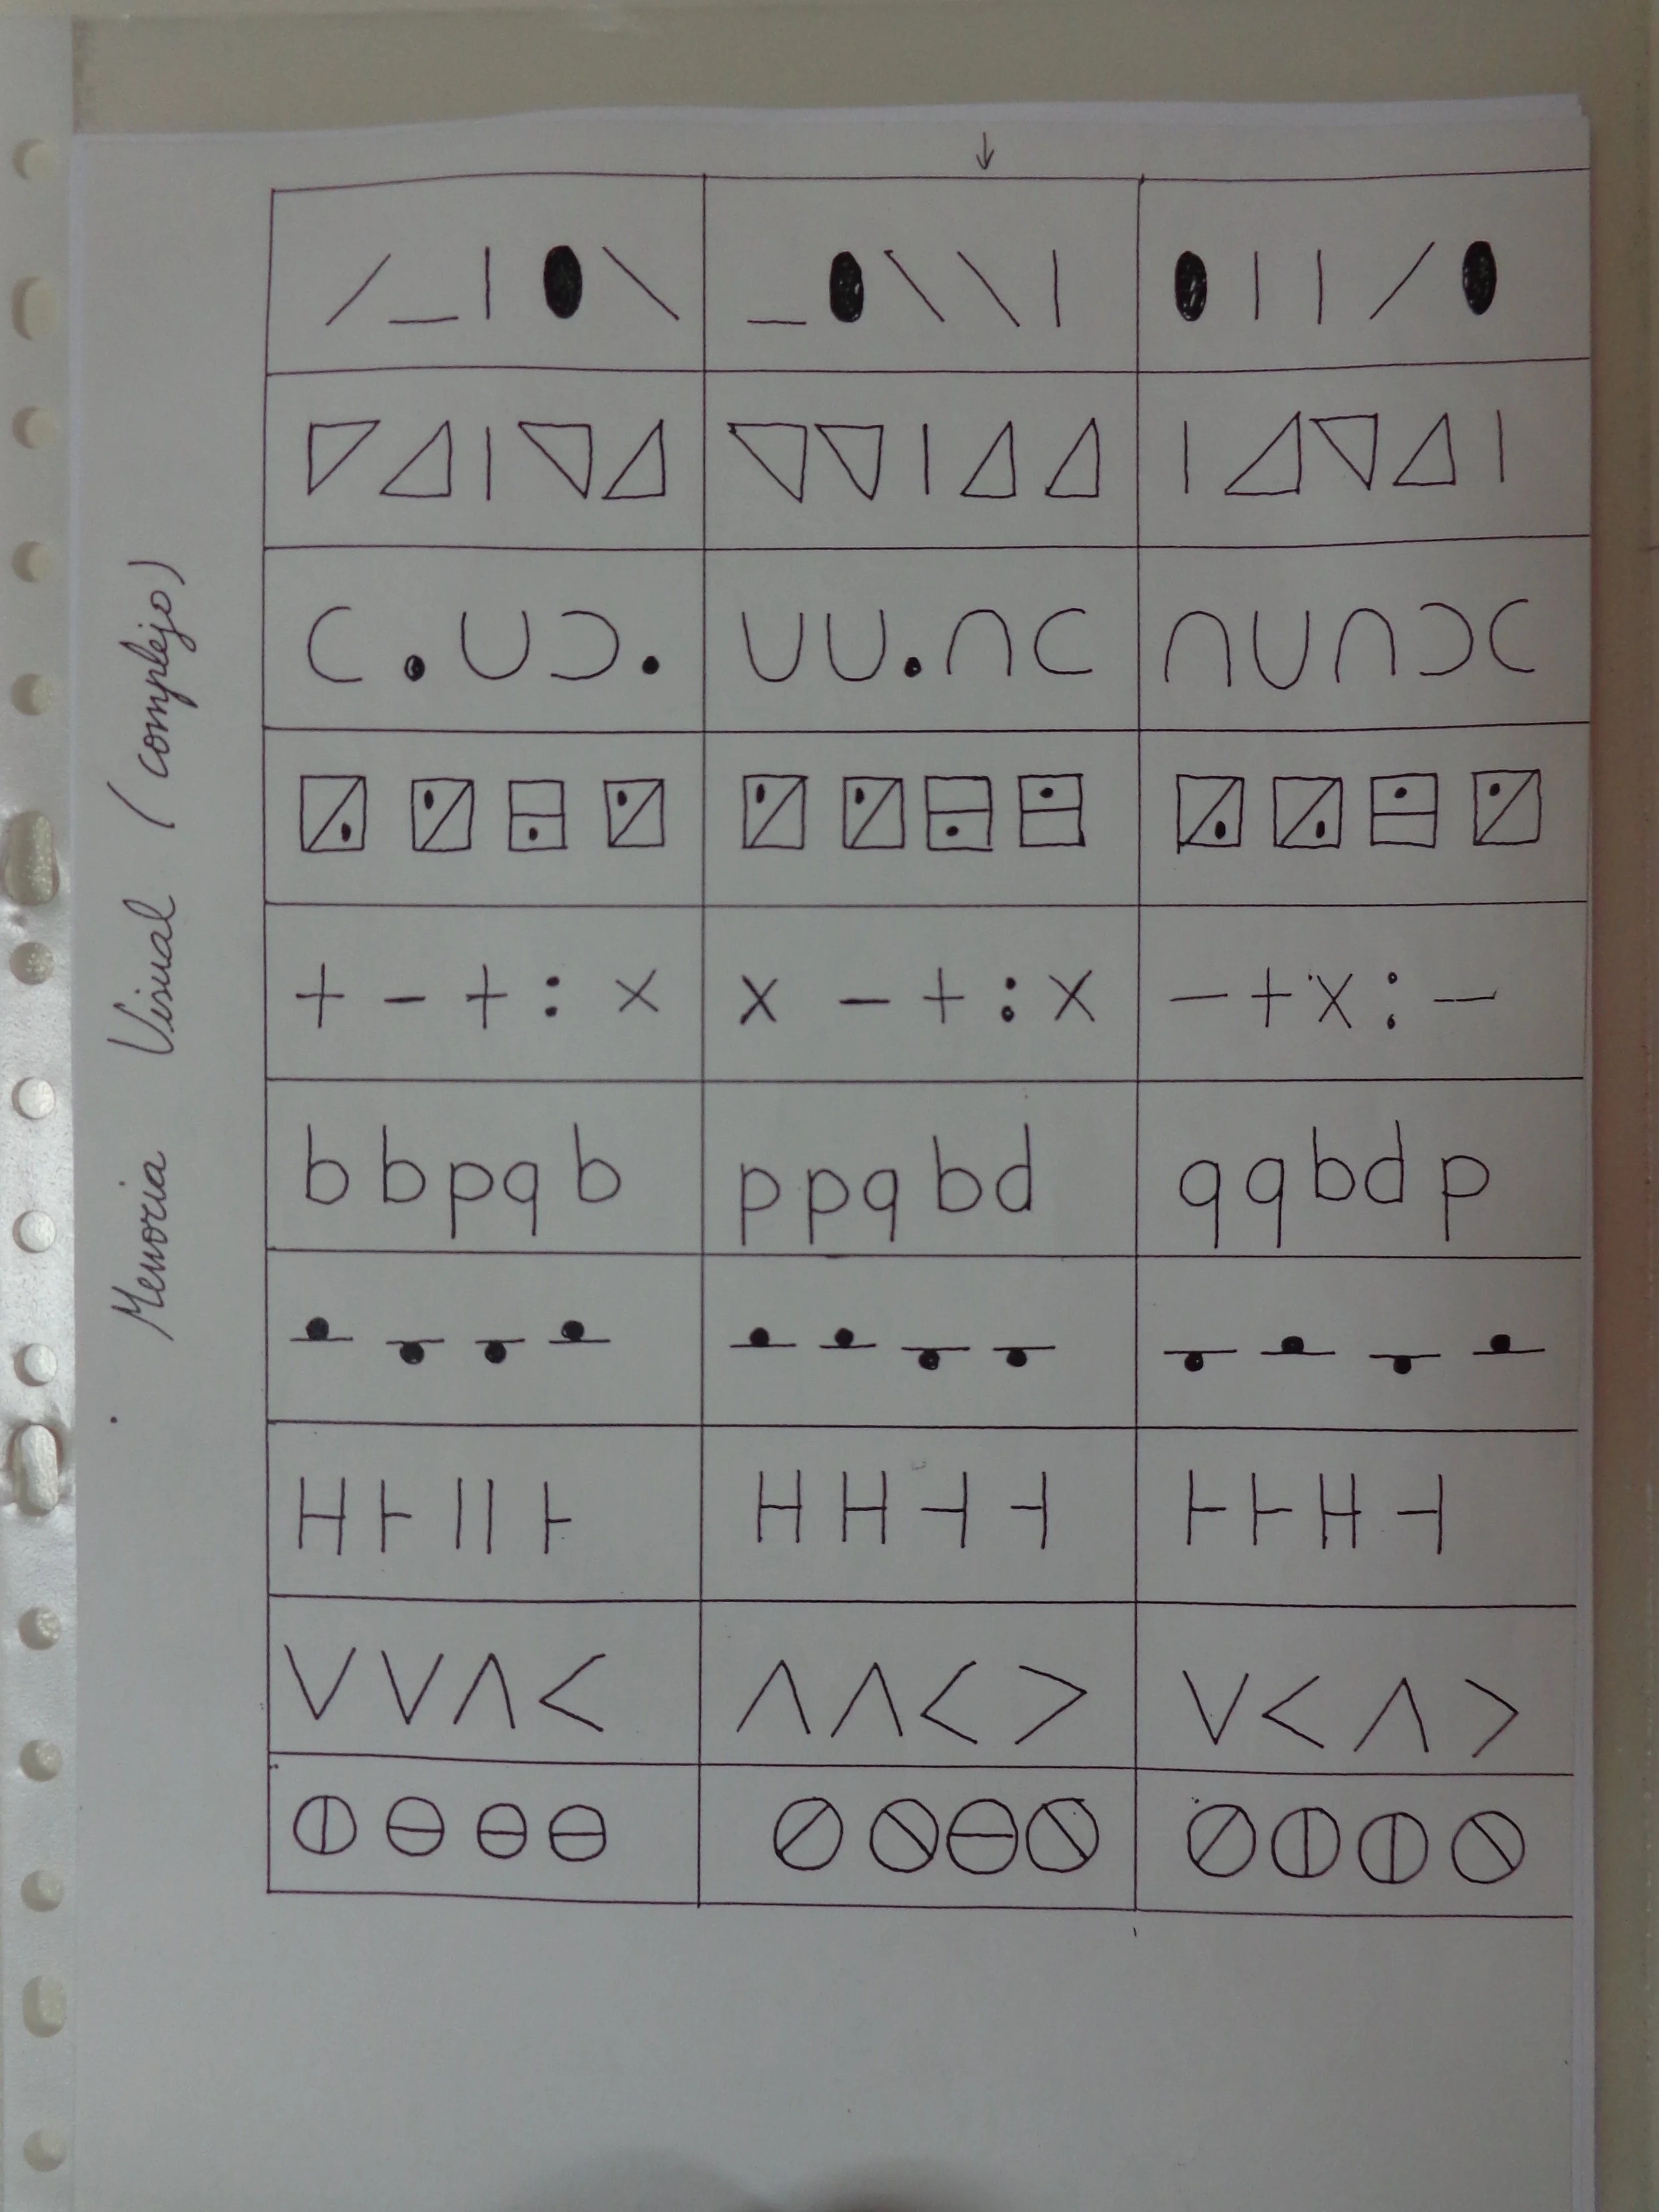 Memoria Visual (complejo)
+ - + : x
x - + : x
- + x : -
b b p q b
p p q b d
q q b d p